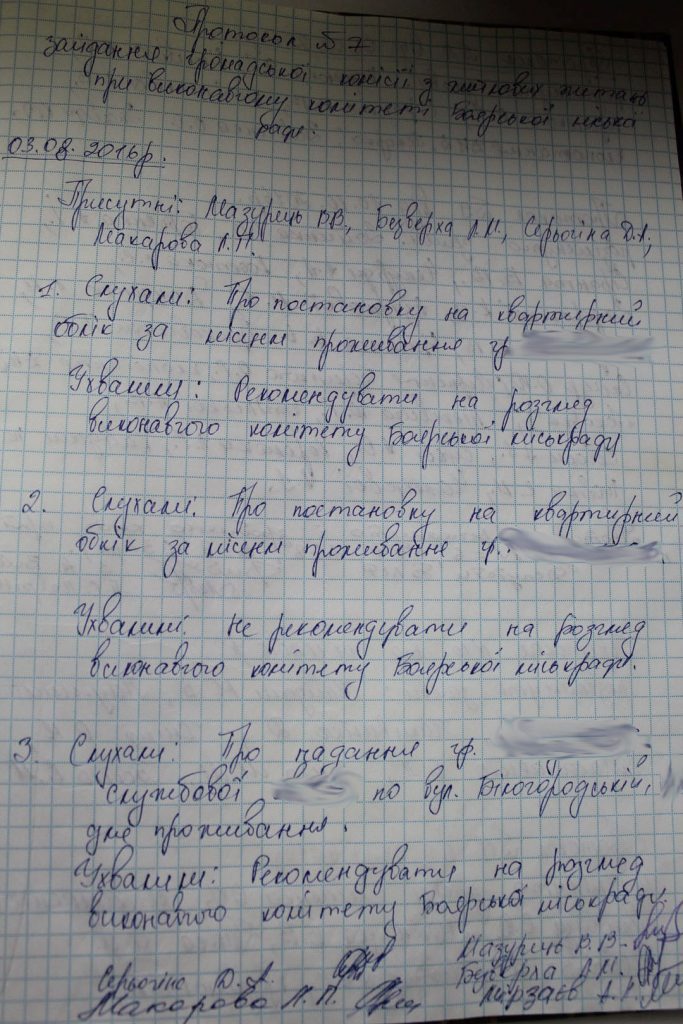 Протокол №7
заідання громадської комісії з житлових питань
при виконавчому комітеті Боярської міської
ради.
03.08.2016р.
Присутні: Мазурець В.В., Безверха Л.М., Серьогіна Д.А.,
Макарова Л.П.
1. Слухали: Про постановку на квартирний
облік за місцем проживання гр.
Ухвалили: Рекомендувати на розгляд
виконавчого комітету Боярської міськради
2. Слухали: Про постановку на квартирний
облік за місцем проживання гр.
Ухвалили: Не рекомендувати на розгляд
виконавчого комітету Боярської міськради.
3. Слухали: Про надання гр.
службової по вул. Білогородській,
для проживання.
Ухвалили: Рекомендувати на розгляд
виконавчого комітету Боярської міськради.
Мазурець В.В.
Серьогіна Д.А. Безверха Л.М.
Макарова Л.П. Мірзаєв